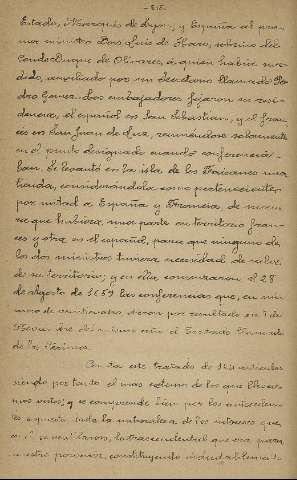 Estado, Marqués de Lyon, y España al pri-
mer ministro Don Luis de Haro, sobrino del
Conde Duque de Olivares, a quien había suce-
dido, auxiliado por un Secretario llamado Pe-
dro Coloma. Los embajadores fijaron su resi-
dencia, el español en San Sebastian, y el fran-
cés en San Juan de Luz, reuniéndose solamente
en el punto designado cuando conferencia-
ban. Se levantó en la isla de los Faisanes una
tienda, considerándola como perteneciente
por mitad a España y Francia, de mane-
ra que hubiera una parte en territorio fran-
cés y otra en el español, para que ninguno de
los dos ministros tuviera necesidad de salir
de su territorio; y en ella comenzaron el 28
de Agosto de 1659 las conferencias que, en nú-
mero de veinticuatro, dieron por resultado en 7 de
Noviembre del mismo año el Tratado llamado
de los Pirineos.
Consta este tratado de 124 artículos
siendo por tanto el mas extenso de los que lleva-
mos vistos; y se comprende bien por los anteceden-
tes y toda la naturaleza de los intereses que
en él se ventilaron, la trascendental que era para
nuestro porvenir, constituyendo